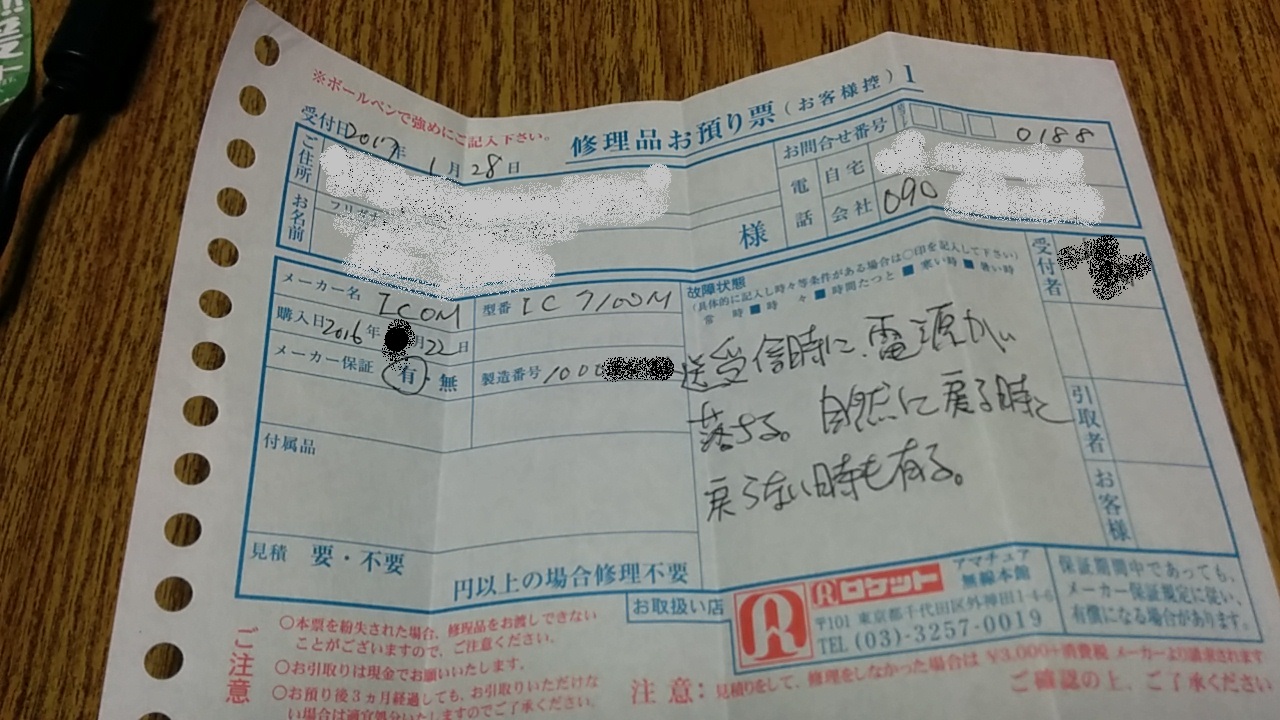 ※ボールペンで強めにご記入下さい。
修理品お預り票(お客様控)1
受付日2017年1月28日
お問合せ番号 0188
ご住所
電話 自宅
会社 090
フリガナ
お名前
様
メーカー名 ICOM
型番 IC7100M
購入日2016年 月22日
メーカー保証 有・無
製造番号 1000
付属品
見積 要・不要
円以上の場合修理不要
故障状態
(具体的に記入し時々等条件がある場合は○印を記入して下さい)
常時■時々■時間たつと■寒い時■暑い時
送受信時に、電源が
落ちる。自然に戻る時と
戻らない時も有る。
受付者
引取者
お客様
お取扱い店
ロケット
アマチュア
無線本館
〒101 東京都千代田区外神田1-4-6
TEL (03)-3257-0019
保証期間中であっても、
メーカー保証規定に従い、
有償になる場合があります。
ご注意
○本票を紛失された場合、修理品をお渡しできない
ことがございますので、ご注意ください。
○お引取りは現金でお願いいたします。
○お預り後3ヵ月経過しても、お引取りいただけな
い場合は適宜処分いたしますのでご了承ください。
注意:見積りをして、修理をしなかった場合は ¥3,000+消費税 メーカーより請求されます
ご確認の上、ご了承ください